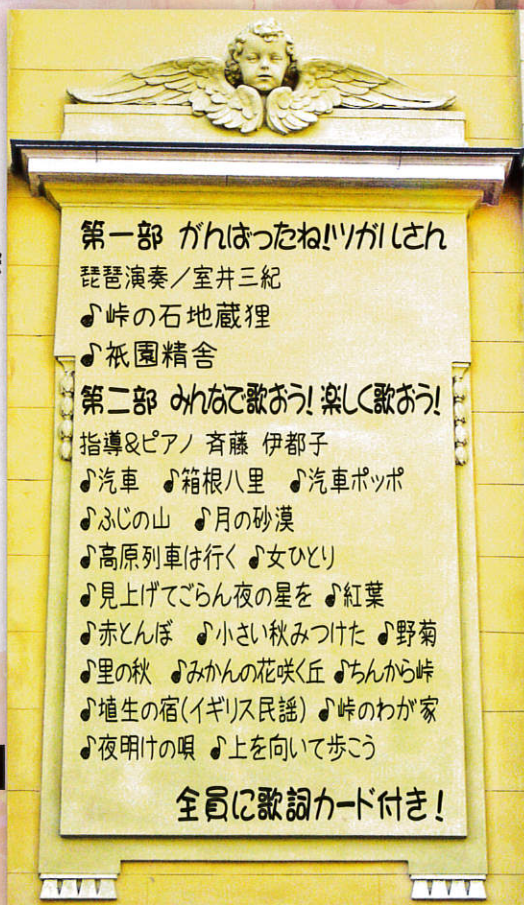 第一部 がんばったね!ツガルさん
琵琶演奏/室井三紀
♪峠の石地蔵狸
♪祇園精舎
第二部 みんなで歌おう! 楽しく歌おう!
指導&ピアノ 斉藤 伊都子
♪汽車 ♪箱根八里 ♪汽車ポッポ
♪ふじの山 ♪月の砂漠
♪高原列車は行く ♪女ひとり
♪見上げてごらん夜の星を ♪紅葉
♪赤とんぼ ♪小さい秋みつけた ♪野菊
♪里の秋 ♪みかんの花咲く丘 ♪ちんから峠
♪埴生の宿(イギリス民謡) ♪峠のわが家
♪夜明けの唄 ♪上を向いて歩こう
全員に歌詞カード付き!